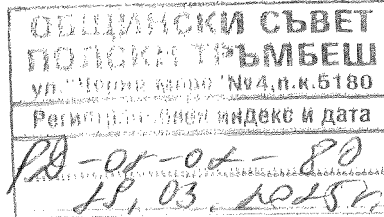 ОБЩИНСКИ СЪВЕТ
ПОЛСКИ ТРЪМБЕШ
ул. "Черно море" №4, п.к. 5180
Регистрационен индекс и дата
РД-01-02-80
03. 2025г.